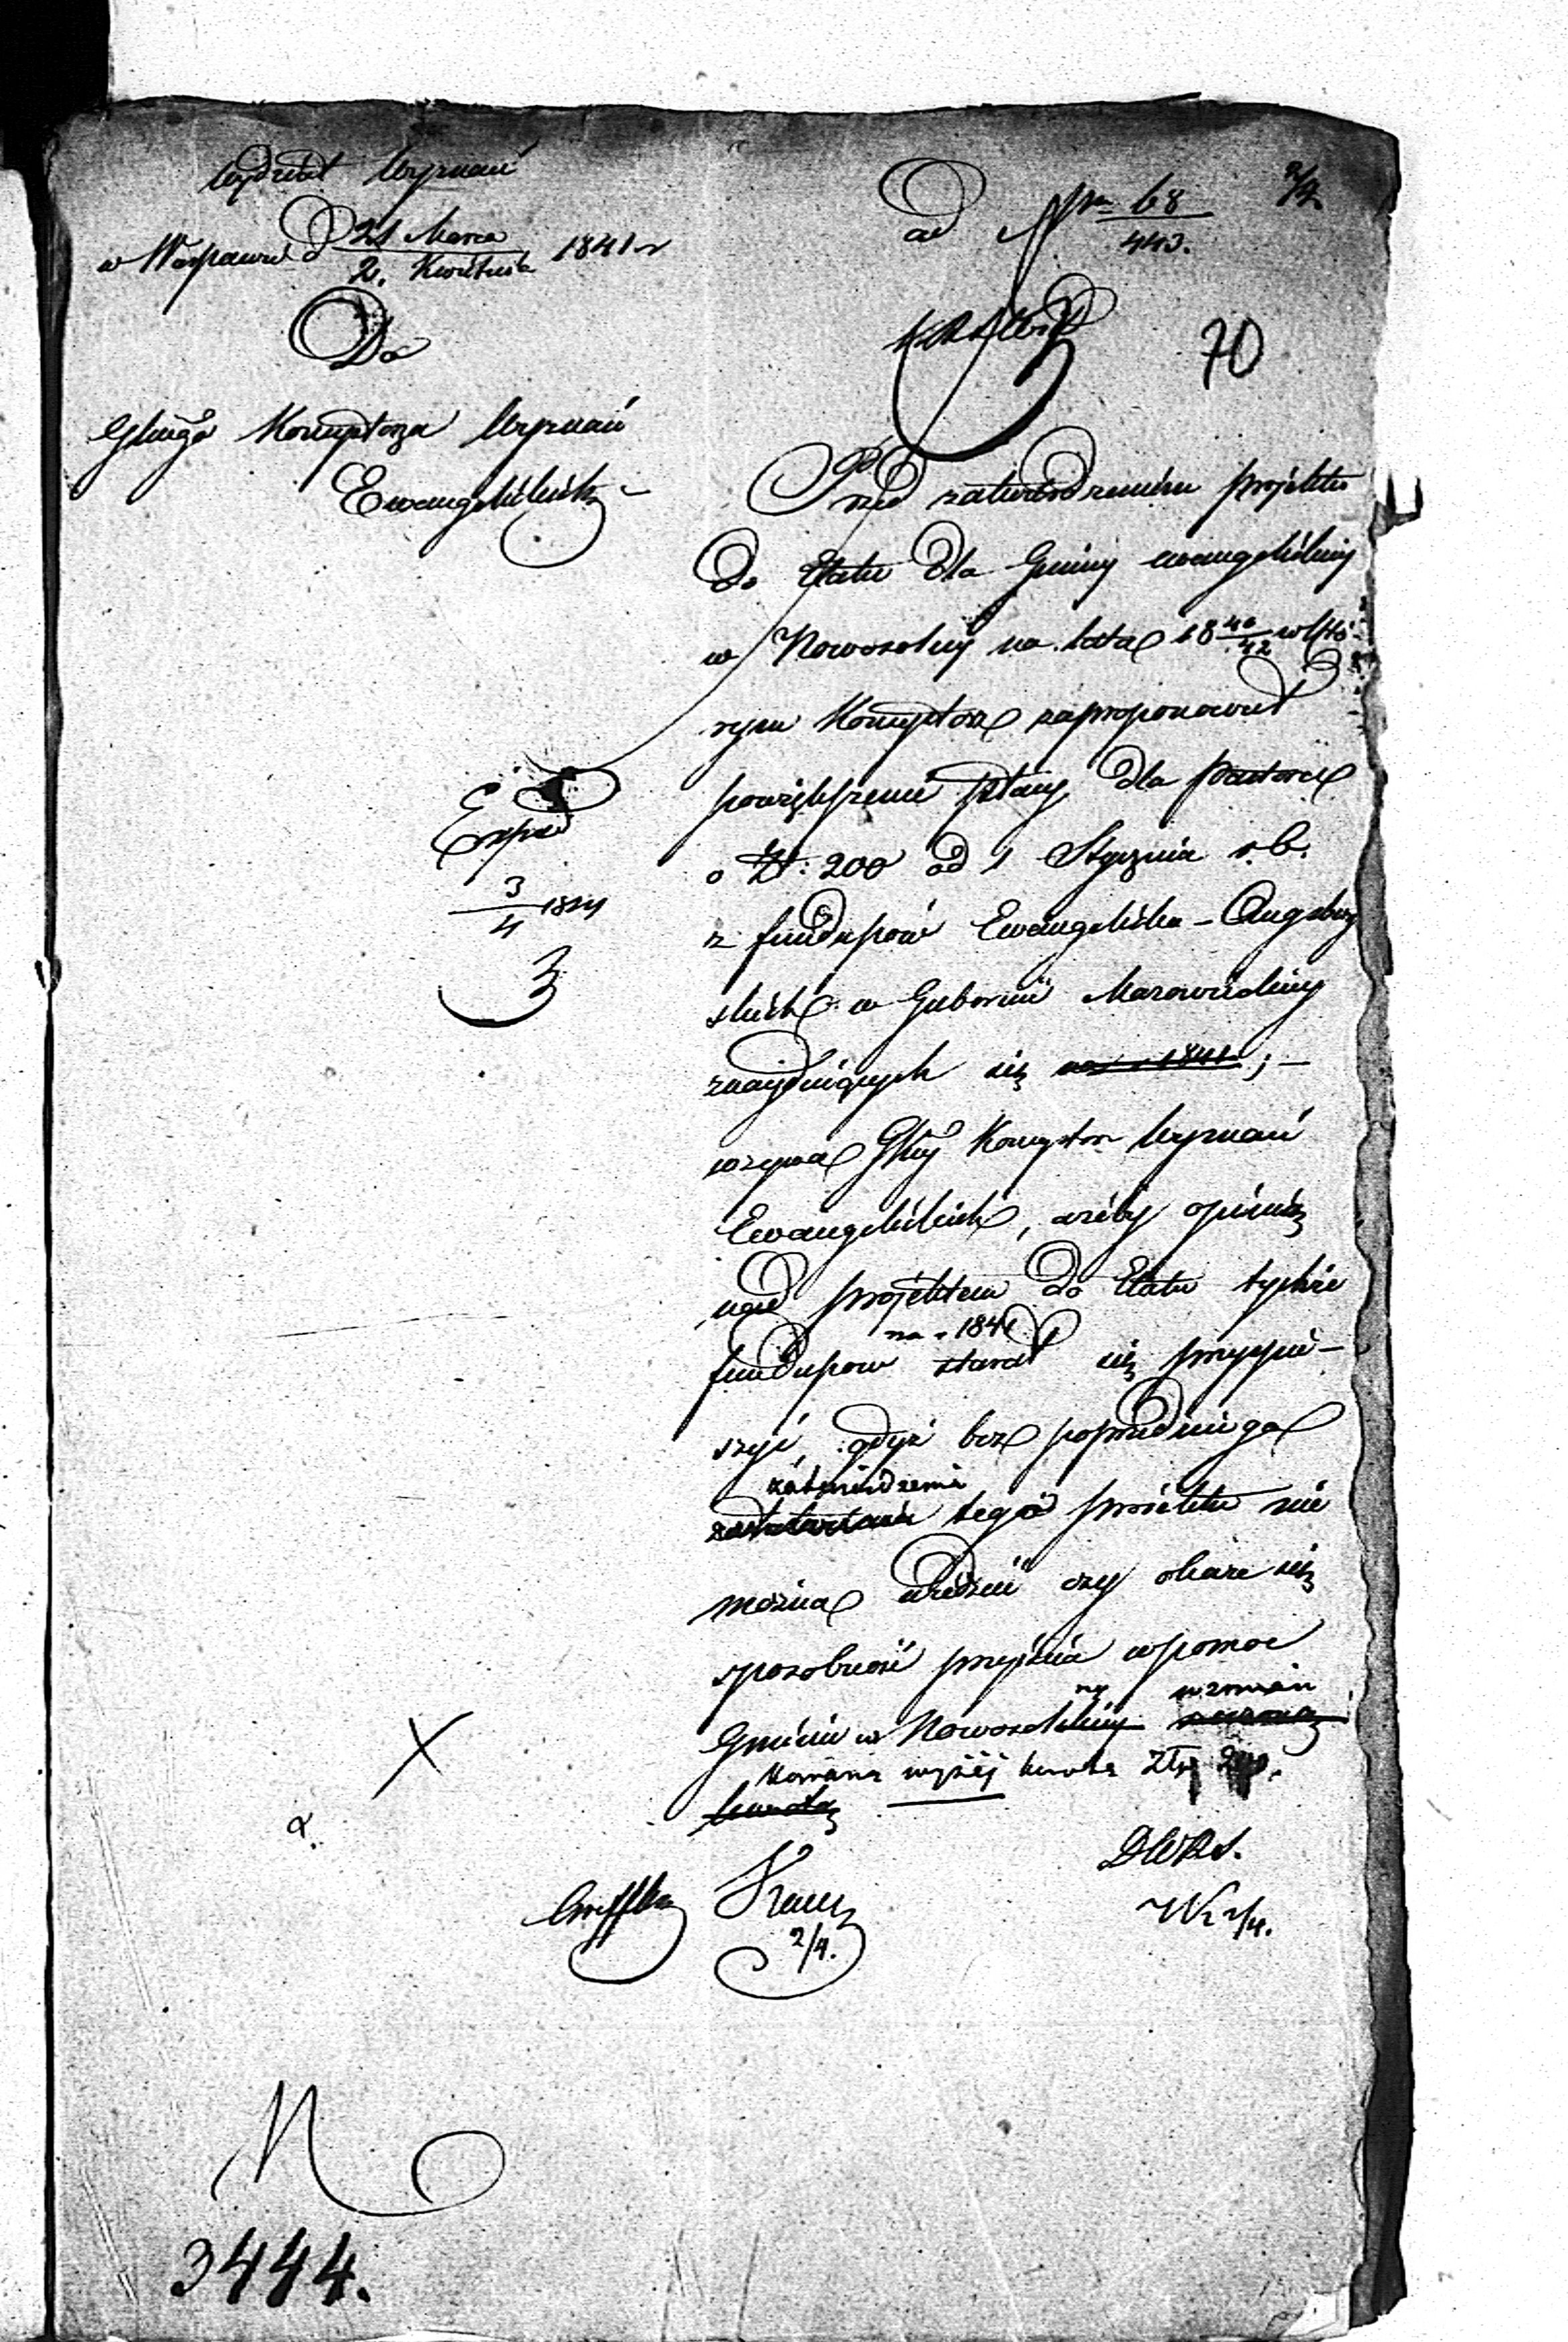 Wydział Wyznań
w Warszawie d 21 Marca / 2. Kwietnia 1841 r
Do
Głnego Konsystorza Wyznań
Ewangelickich
ad Nru 68 / 443.
2/4
70
Przed zatwierdzeniem projektu
do Etatu dla Gminy ewangelickiej
w Nowosolnej na lata 18 40/42 w któ-
rym Konsystorz zaproponował
powiększenie płacy dla pastora
o Zł: 200 od 1 Stycznia r.b.
z funduszów Ewangelicko-Augsbur
skich w Gubernii Mazowieckiej
znajdujących się na r 1841;
wzywa Głny Konsystorz Wyznań
Ewangelickich, ażeby opinią
nad projektem do Etatu tychże
na r 1841
funduszow starał się przyspie-
szyć, gdyż bez poprzedniego
zatwierdzenia
tego projektu nie
można wiedzieć czy okaże się
sposobność przyjścia w pomoc
ny wzmian
Gminie w Nowosolnej
kowaną wyżej kwotą Złp 200.
kwotą
Exped
3/4 1841
DWRS.
2/4.
2/4.
3444.